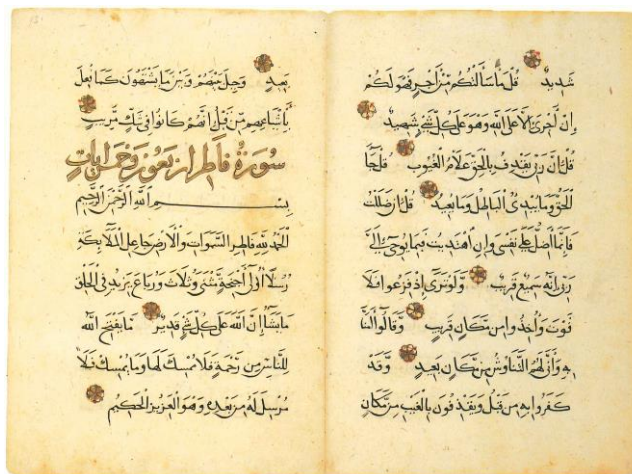 شديد قل ما سألتكم من أجر فهو لكم
إن أجري إلا على الله وهو على كل شيء شهيد
قل إن ربي يقذف بالحق علام الغيوب قل جا
الحق وما يبدئ الباطل وما يعيد قل إن ضللت
فإنما أضل على نفسي وإن اهتديت فبما يوحي إلي
ربي إنه سميع قريب ولو ترى إذ فزعوا فلا
فوت وأخذوا من مكان قريب وقالوا آمنا
به وأنى لهم التناوش من مكان بعيد وقد
كفروا به من قبل ويقذفون بالغيب من مكان
بعيد وحيل بينهم وبين ما يشتهون كما فعل
بأشياعهم من قبل إنهم كانوا في شك مريب
سورة فاطر أربعون وخمس آيات
بسم الله الرحمن الرحيم
الحمد لله فاطر السموات والأرض جاعل الملائكة
رسلا أولي أجنحة مثنى وثلاث ورباع يزيد في الخلق
ما يشا إن الله على كل شيء قدير ما يفتح الله
للناس من رحمة فلا ممسك لها وما يمسك فلا
مرسل له من بعده وهو العزيز الحكيم